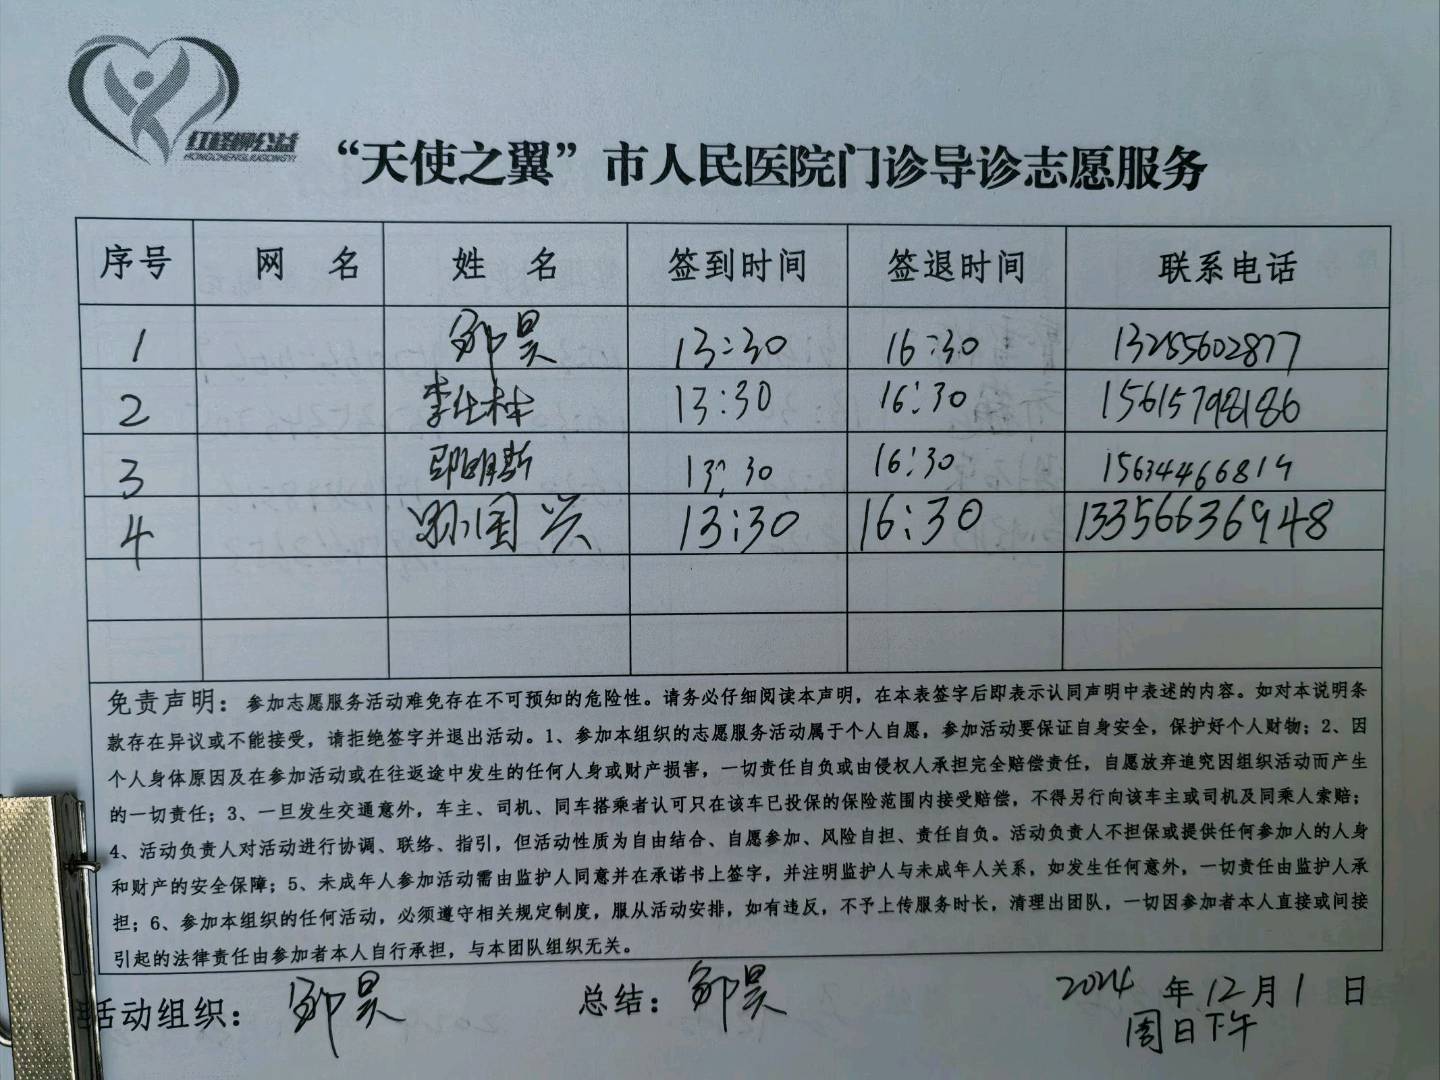 红柽柳公益
HONGCHENGLIUGONGYI
“天使之翼”市人民医院门诊导诊志愿服务
序号 网 名 姓 名 签到时间 签退时间 联系电话
1 邹昊 13:30 16:30 13255602877
2 李仕林 13:30 16:30 15615798186
3 13:30 16:30 15634466814
4 孙国兴 13:30 16:30 13356636948
免责声明：参加志愿服务活动难免存在不可预知的危险性。请务必仔细阅读本声明，在本表签字后即表示认同声明中表述的内容。如对本说明条
款存在异议或不能接受，请拒绝签字并退出活动。1、参加本组织的志愿服务活动属于个人自愿，参加活动要保证自身安全，保护好个人财物；2、因
个人身体原因及在参加活动或在往返途中发生的任何人身或财产损害，一切责任自负或由侵权人承担完全赔偿责任，自愿放弃追究因组织活动而产生
的一切责任；3、一旦发生交通意外，车主、司机、同车搭乘者认可只在该车已投保的保险范围内接受赔偿，不得另行向该车主或司机及同乘人索赔；
4、活动负责人对活动进行协调、联络、指引，但活动性质为自由结合、自愿参加、风险自担、责任自负。活动负责人不担保或提供任何参加人的人身
和财产的安全保障；5、未成年人参加活动需由监护人同意并在承诺书上签字，并注明监护人与未成年人关系，如发生任何意外，一切责任由监护人承
担；6、参加本组织的任何活动，必须遵守相关规定制度，服从活动安排，如有违反，不予上传服务时长，清理出团队，一切因参加者本人直接或间接
引起的法律责任由参加者本人自行承担，与本团队组织无关。
活动组织：邹昊 总结：邹昊 2024 年 12 月 1 日
周日下午